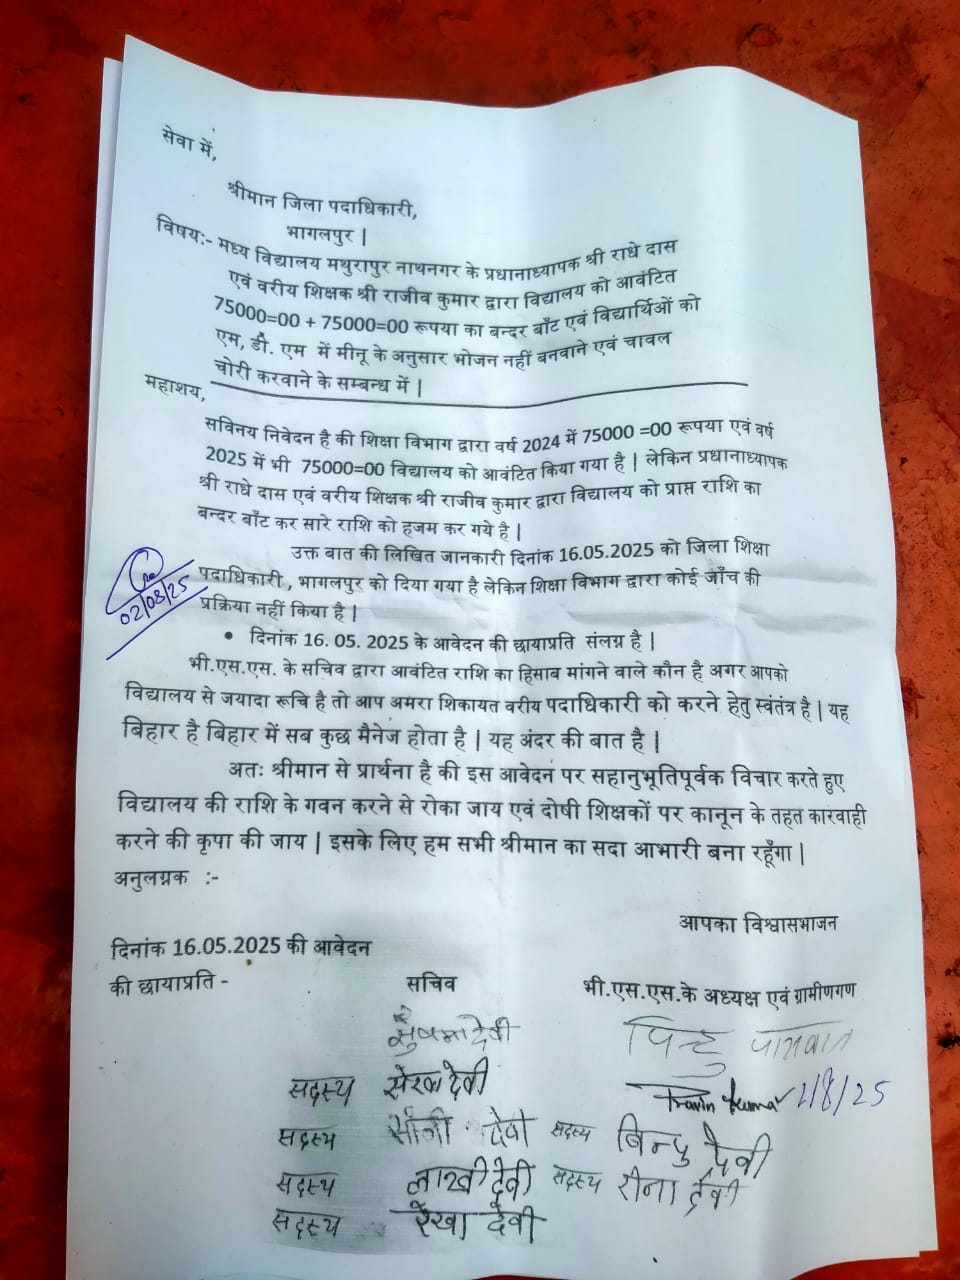 सेवा में,
श्रीमान जिला पदाधिकारी,
भागलपुर |
विषय:- मध्य विद्यालय मथुरापुर नाथनगर के प्रधानाध्यापक श्री राधे दास
एवं वरीय शिक्षक श्री राजीव कुमार द्वारा विद्यालय को आवंटित
75000=00 + 75000=00 रूपया का बन्दर बाँट एवं विद्यार्थिओं को
एम, डी. एम में मीनू के अनुसार भोजन नहीं बनवाने एवं चावल
चोरी करवाने के सम्बन्ध में |
महाशय,
सविनय निवेदन है की शिक्षा विभाग द्वारा वर्ष 2024 में 75000 =00 रूपया एवं वर्ष
2025 में भी 75000=00 विद्यालय को आवंटित किया गया है | लेकिन प्रधानाध्यापक
श्री राधे दास एवं वरीय शिक्षक श्री राजीव कुमार द्वारा विद्यालय को प्राप्त राशि का
बन्दर बाँट कर सारे राशि को हजम कर गये है |
उक्त बात की लिखित जानकारी दिनांक 16.05.2025 को जिला शिक्षा
पदाधिकारी , भागलपुर को दिया गया है लेकिन शिक्षा विभाग द्वारा कोई जाँच की
प्रक्रिया नहीं किया है |
02/08/25
• दिनांक 16. 05. 2025 के आवेदन की छायाप्रति संलग्न है |
भी.एस.एस. के सचिव द्वारा आवंटित राशि का हिसाब मांगने वाले कौन है अगर आपको
विद्यालय से जयादा रूचि है तो आप अमरा शिकायत वरीय पदाधिकारी को करने हेतु स्वंतंत्र है | यह
बिहार है बिहार में सब कुछ मैनेज होता है | यह अंदर की बात है |
अतः श्रीमान से प्रार्थना है की इस आवेदन पर सहानुभूतिपूर्वक विचार करते हुए
विद्यालय की राशि के गवन करने से रोका जाय एवं दोषी शिक्षकों पर कानून के तहत कारवाही
करने की कृपा की जाय | इसके लिए हम सभी श्रीमान का सदा आभारी बना रहूँगा |
अनुलग्नक :-
आपका विश्वासभाजन
दिनांक 16.05.2025 की आवेदन
की छायाप्रति -
सचिव
भी.एस.एस.के अध्यक्ष एवं ग्रामीणगण
देवी
Kumar 2/8/25
सदस्य देवी
सदस्य देवी सदस्य बिन्दु देवी
सदस्य लाखी देवी सदस्य रीना देवी
सदस्य रेखा देवी